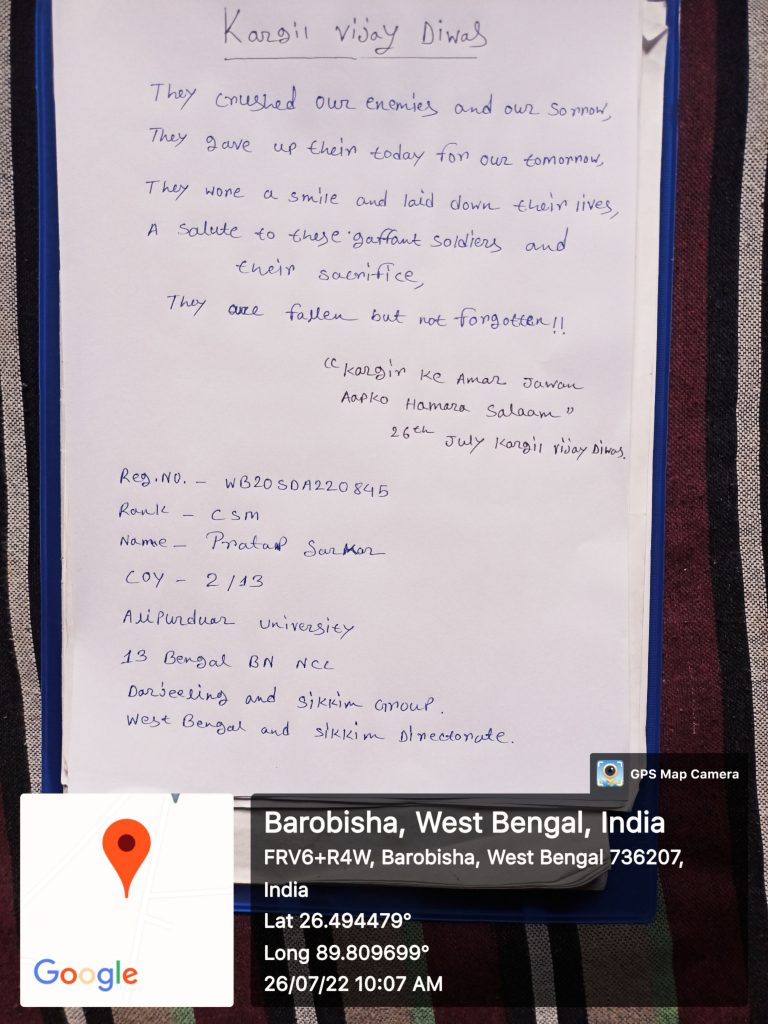 Kargil Vijay Diwas
They crushed our enemies and our sorrow,
They gave up their today for our tomorrow,
They wore a smile and laid down their lives,
A salute to these gaffant soldiers and
their sacrifice,
They are fallen but not forgotten!!
"Kargir Ke Amar Jawan
Aapko Hamara Salaam"
26th July Kargil Vijay Diwas.
Reg.No. - WB20SDA220845
Rank - CSM
Name - Pratap Sarkar
COY - 2/13
Alipurduar University
13 Bengal BN NCC
Darjeeling and Sikkim Group.
West Bengal and Sikkim Directorate.
GPS Map Camera
Barobisha, West Bengal, India
FRV6+R4W, Barobisha, West Bengal 736207,
India
Lat 26.494479°
Long 89.809699°
26/07/22 10:07 AM
Google